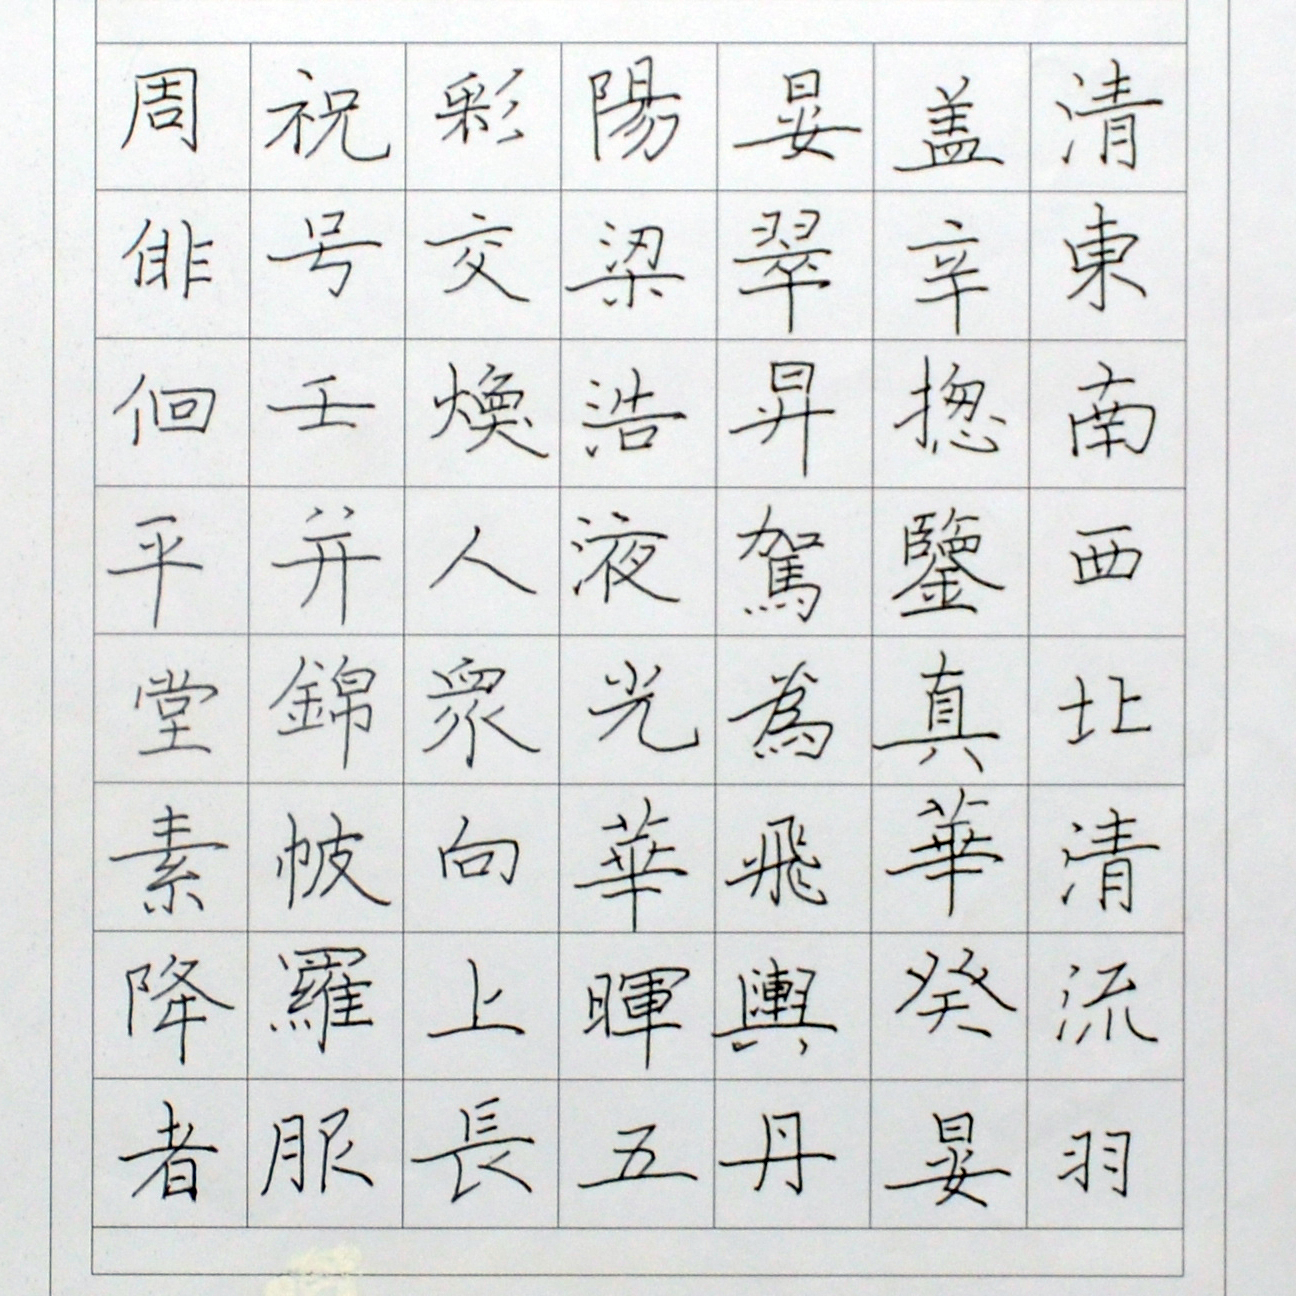 清東南西北清流羽
盖辛揔鑒真華癸晏
晏翠昇駕為飛輿丹
陽梁浩液光華暉五
彩交煥人衆向上長
祝号壬并錦帔羅服
周俳佪平堂素降者